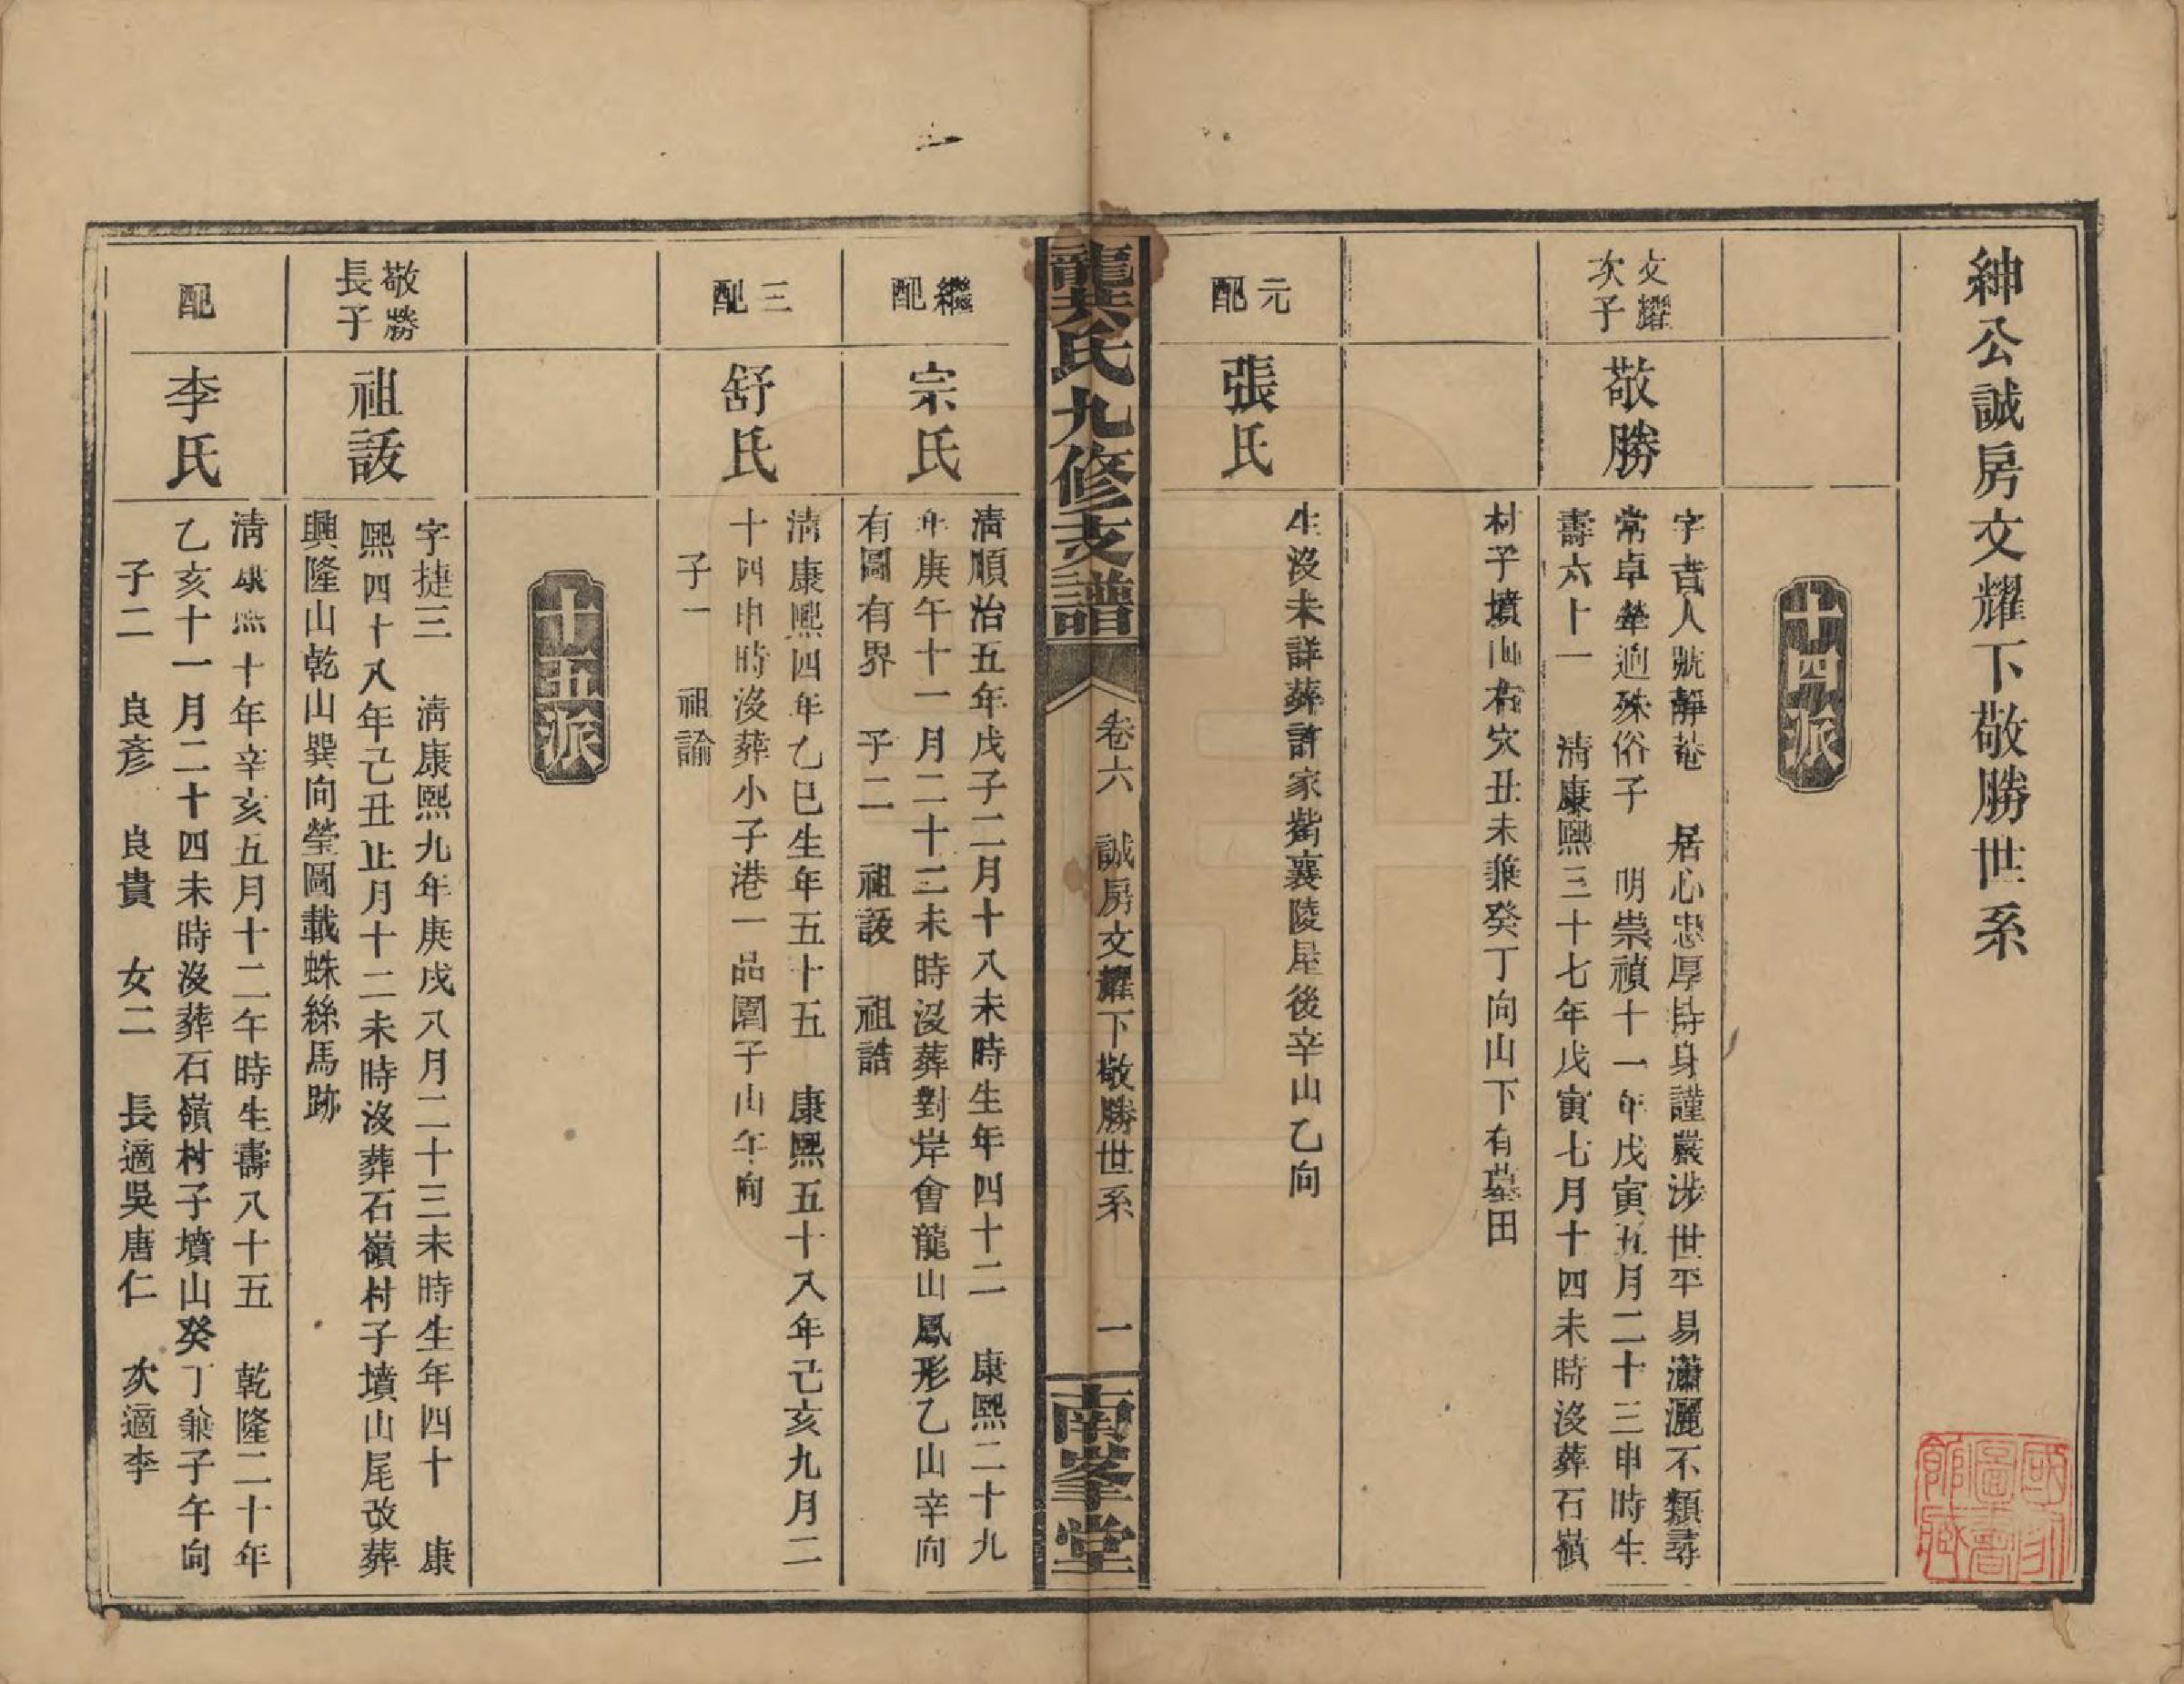 紳公誠房文耀下敬勝世系
十四派
文耀
次子
敬勝
字吉人號靜菴　居心忠厚持身謹嚴涉世平易瀟灑不類尋
常卓犖逈殊俗子　明崇禎十一年戊寅五月二十三申時生
壽六十一　清康熙三十七年戊寅七月十四未時沒葬石嶺
村子墳山右穴丑未兼癸丁向山下有墓田
元
配
張氏
生沒未詳葬許家觜襄陵屋後辛山乙向
龔氏九修支譜
卷六　誠房文耀下敬勝世系
一
南峯堂
繼
配
宗氏
清順治五年戊子二月十八未時生年四十二　康熙二十九
年庚午十一月二十三未時沒葬對岸會龍山鳳形乙山辛向
有圖有界　子二　祖詼　祖誥
三
配
舒氏
清康熙四年乙巳生年五十五　康熙五十八年己亥九月二
十四申時沒葬小子港一品圍子山午向
子一　祖諭
十五派
敬勝
長子
祖詼
字捷三　清康熙九年庚戌八月二十三未時生年四十　康
熙四十八年己丑正月十二未時沒葬石嶺村子墳山尾改葬
興隆山乾山巽向塋圖載蛛絲馬跡
配
李氏
清康熙十年辛亥五月十二午時生壽八十五　乾隆二十年
乙亥十一月二十四未時沒葬石嶺村子墳山癸丁兼子午向
子二　良彥　良貴　女二　長適吳唐仁　次適李
國家
圖書
館藏